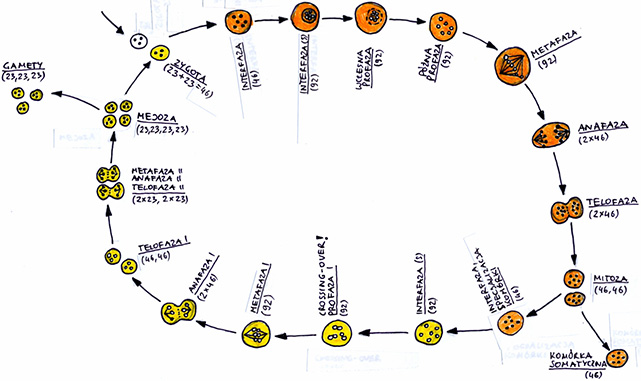 GAMETY
(23,23,23)
ZYGOTA
(23+23=46)
INTERFAZA
(46)
INTERFAZA (S)
(92)
WCZESNA
PROFAZA
(92)
PÓŹNA
PROFAZA
(92)
METAFAZA
(92)
ANAFAZA
(2x46)
TELOFAZA
(2x46)
MITOZA
(46,46)
KOMÓRKA
SOMATYCZNA
(46)
INTERFAZA I
SPECJALIZACJA
KOMÓRKI
(46)
INTERFAZA (S)
(92)
CROSSING-OVER!
PROFAZA I
(92)
METAFAZA I
(92)
ANAFAZA I
(2x46)
TELOFAZA I
(46,46)
METAFAZA II
ANAFAZA II
TELOFAZA II
(2x23, 2x23)
MEJOZA
(23,23,23,23)